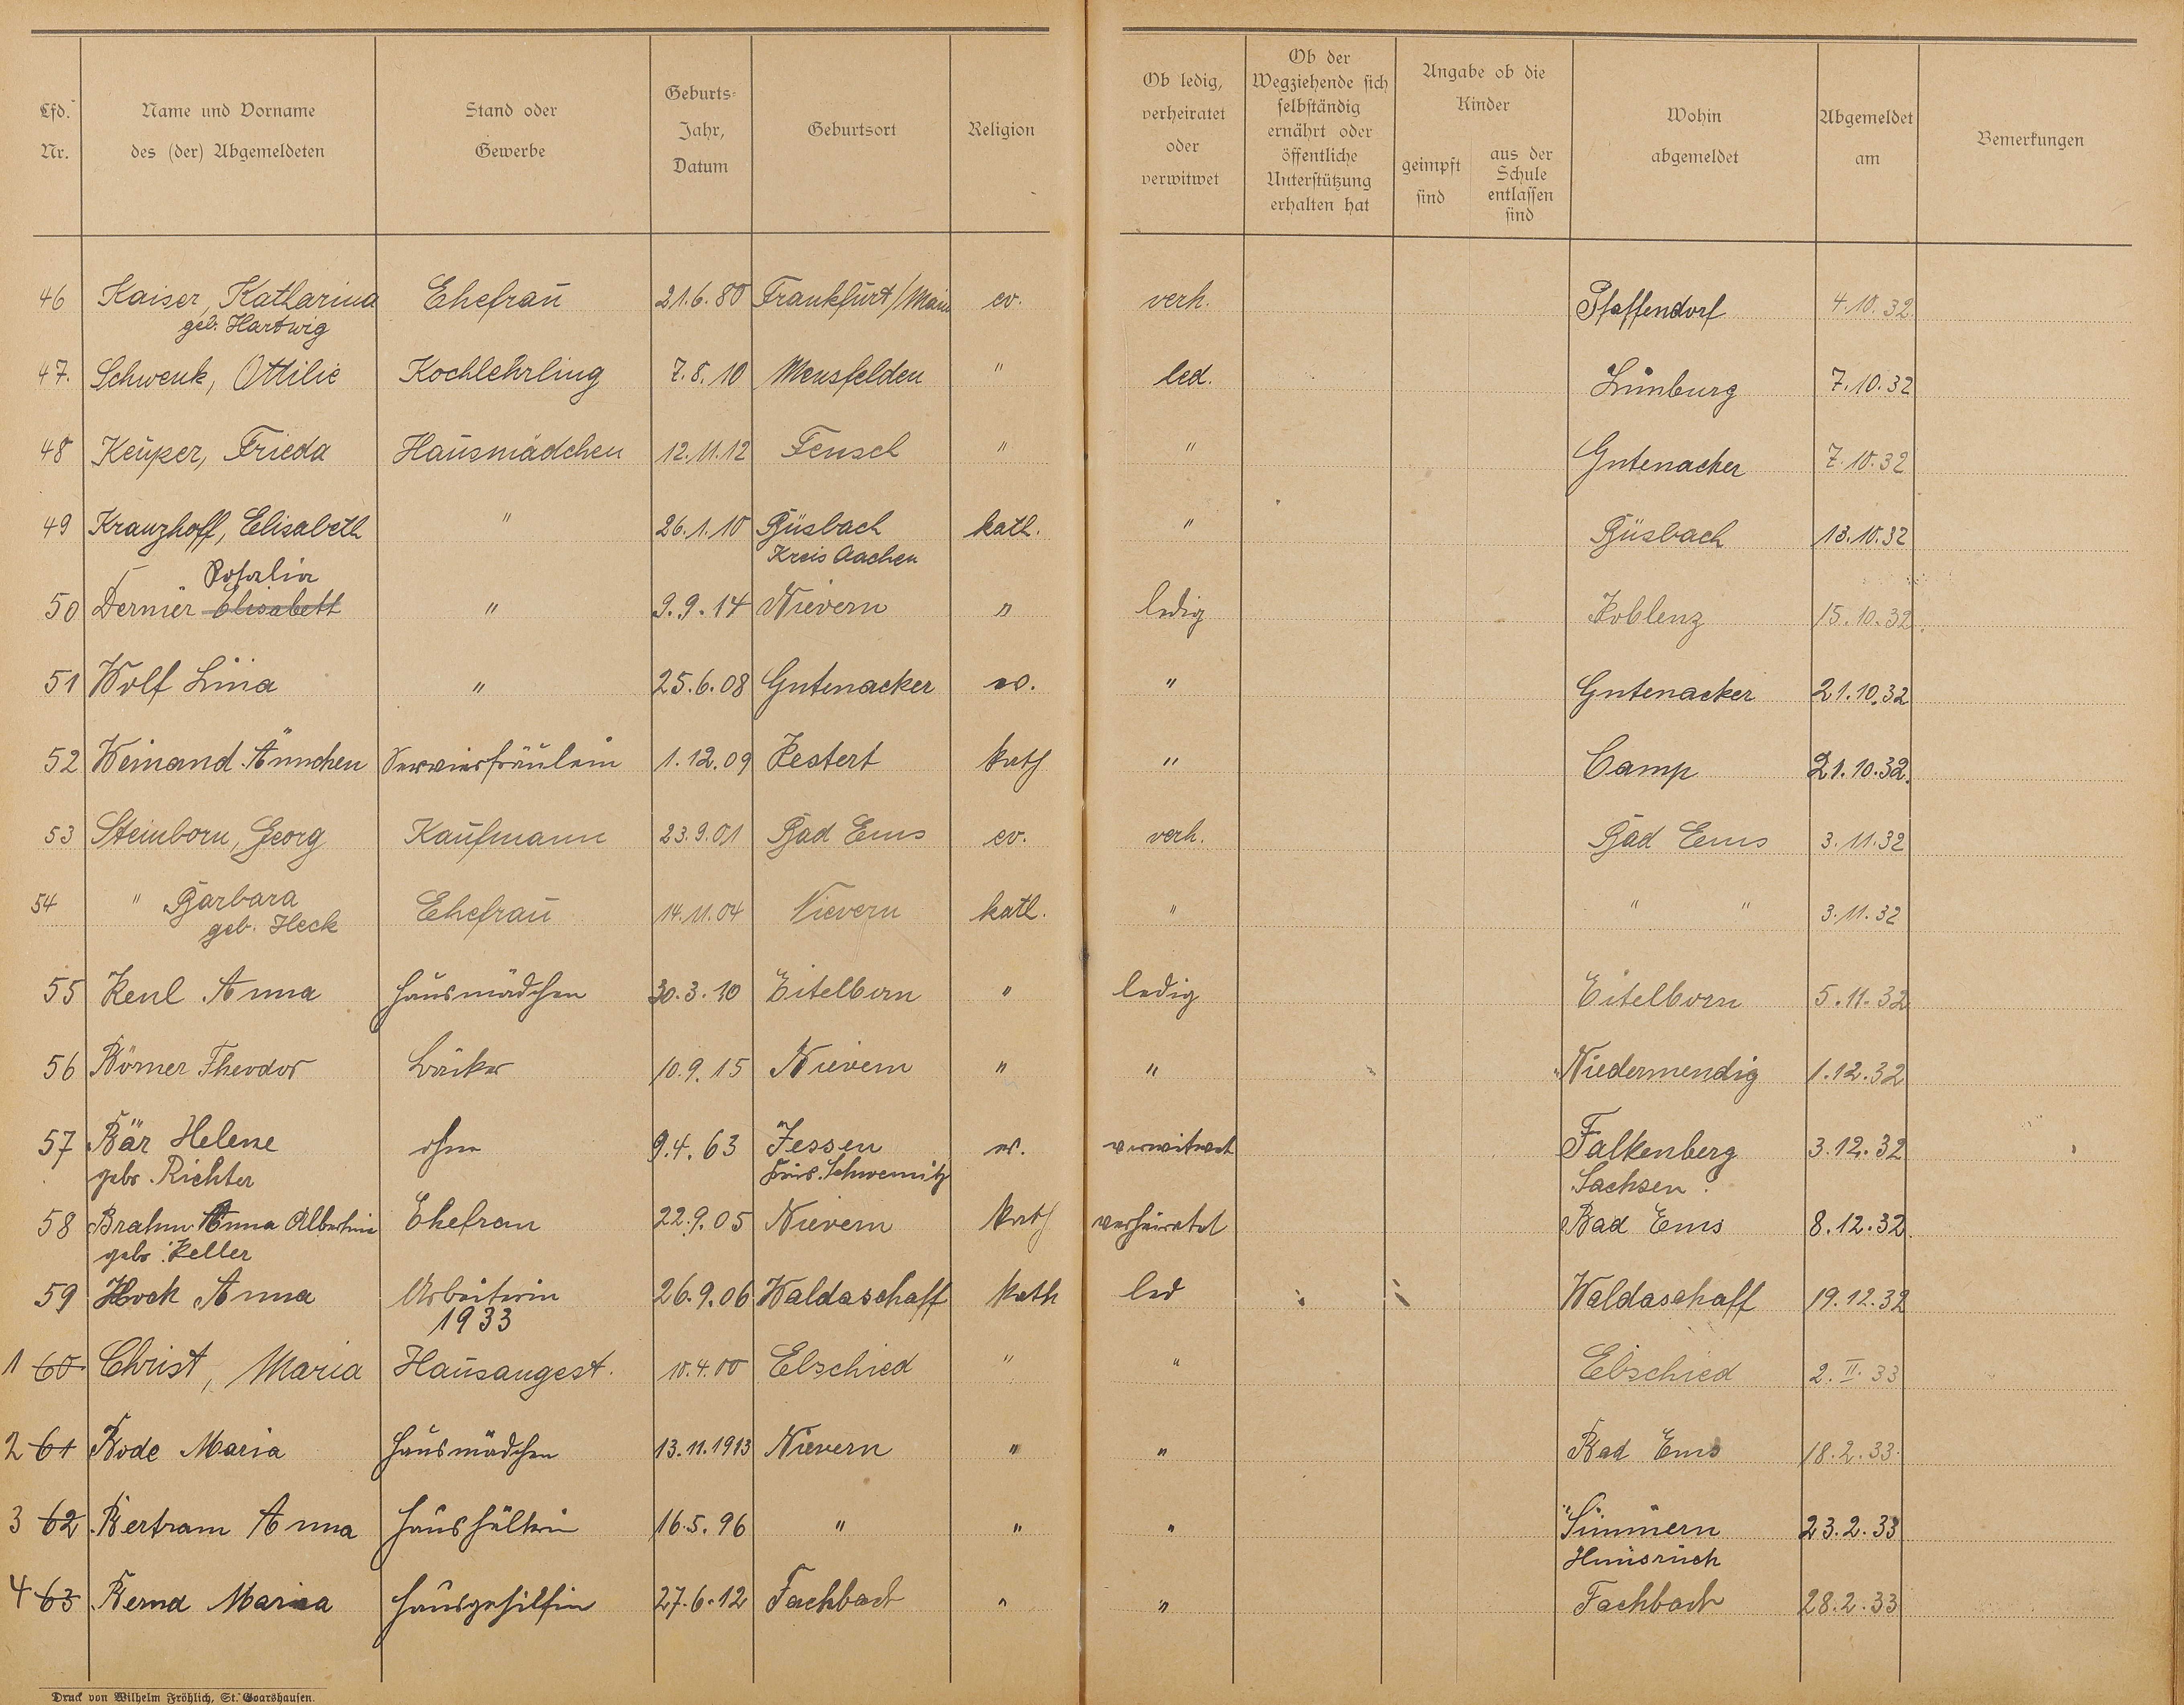 Lfd. Nr.
Name und Vorname des (der) Abgemeldeten
Stand oder Gewerbe
Geburts-Jahr, Datum
Geburtsort
Religion
Ob ledig, verheiratet oder verwitwet
Ob der Wegziehende sich selbständig ernährt oder öffentliche Unterstützung erhalten hat
Angabe ob die Kinder
geimpft sind
aus der Schule entlassen sind
Wohin abgemeldet
Abgemeldet am
Bemerkungen
46 Kaiser, Katharina Ehefrau 21.6.80 Frankfurt/Main ev. verh. Pfaffendorf 4.10.32
geb. Hartwig
47. Schwenk, Ottilie Kochlehrling 7.8.10 Mensfelden " led. Limburg 7.10.32
48 Keuper, Frieda Hausmädchen 12.11.12 " " Gutenacker 7.10.32
49 Kranzhoff, Elisabeth " 26.1.10 Büsbach kath. " Büsbach 13.10.32
Kreis Aachen
Rosalia
50 Dernier Elisabett " 9.9.14 Nievern " ledig Koblenz 15.10.32.
51 Wolf Lina " 25.6.08 Gutenacker ev. " Gutenacker 21.10.32
52 Weinand Ännchen Servierfräulein 1.12.09 Kestert kath " Camp 21.10.32.
53 Steinborn, Georg Kaufmann 23.9.01 Bad Ems ev. verh. Bad Ems 3.11.32
54 " Barbara Ehefrau 14.11.04 Nievern kath. " " " 3.11.32
geb. Heck
55 Keul Anna Hausmädchen 30.3.10 Eitelborn " ledig Eitelborn 5.11.32
56 Börner Theodor Bäcker 10.9.15 Nievern " " Niedermendig 1.12.32
57 Bär Helene ohne 9.4.63 Jessen ev. verwitwet Falkenberg 3.12.32
gebr. Richter Kreis. Schweinitz Sachsen.
58 Brahm Anna Albertine Ehefrau 22.9.05 Nievern kath verheiratet Bad Ems 8.12.32.
gebr. Keller
59 Hock Anna Arbeiterin 26.9.06 Waldaschaff kath led Waldaschaff 19.12.32
1933
1 60 Christ, Maria Hausangest. 10.4.00 Ebschied " " Ebschied 2.II.33
2 61 Bode Maria Hausmädchen 13.11.1913 Nievern " " Bad Ems 18.2.33.
3 62 Bertram Anna Haushälterin 16.5.96 " " " Simmern 23.2.33
Hunsrück
4 63 Bernd Maria Hausgehilfin 27.6.12 Fachbach " " Fachbach 28.2.33
Druck von Wilhelm Fröhlich, St. Goarshausen.